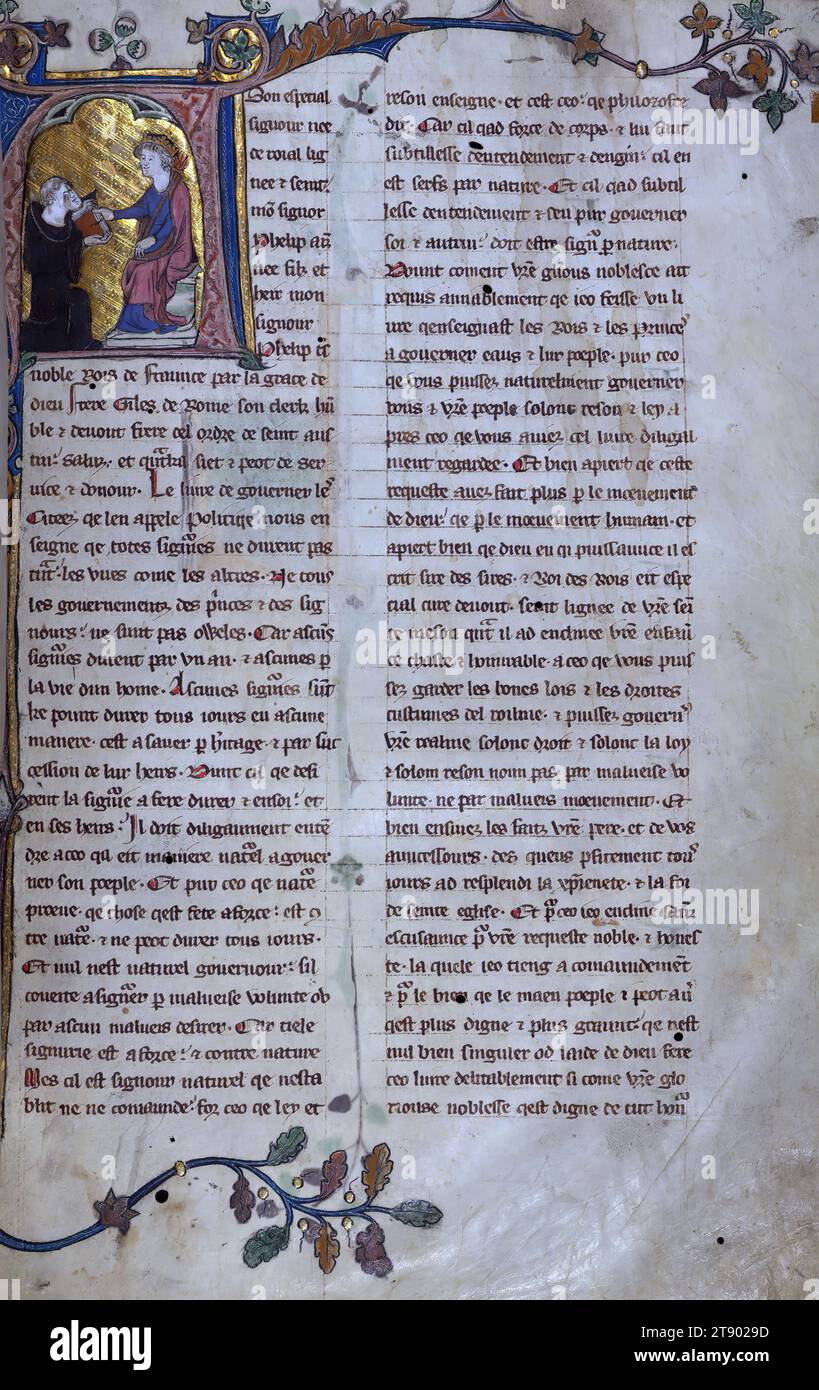 Son especial
signour nee
de roial lig
nee & seinte
mō signor
Phelip ain
nee filz et
heir mon
signour
Phelip t̄s
noble Rois de Fraunce par la grace de
dieu frere Giles de Rome son clerk hū
ble & devout frere del ordre de seint aus
tin. saluz. et
vice & donour. Le livre de governer les
Citeez qe len appele Politiqe nous en
seigne qe totes signies ne durent pas
les unes come les altres. Ne tous
les governementz des p̄nces & des sig
nours. ne sunt pas oweles. Car ascūs
signies durent par un an. & ascunes p̄
la vie dun home. Ascunes signies sūt
ke pount durer tous iours en ascune
manere. cest a saver p̄ h̓itage. & par suc
cession de lur heirs. Dunt cil qe desi
rent la signie a fere durer & en soi. et
en ses heirs. Il doit diligaument entē
dre a ceo qil eit maniere natel a gover
ner son poeple. Et pur ceo qe nate
proeve. qe chose qest fete a force. est cō
tre nate. & ne peot durer tous iours.
Et nul nest naturel governour. sil
coveite a signer p̄ malveise volunte ov
par ascun malveis desirer. Car tiele
signurie est a force. & contre nature
Mes cil est signour naturel qe nesta
blit ne ne comaunde. fors ceo qe ley et
reson enseigne. et cest ceo. qe philozofre
dit. Car cil qad force de corps. & lui faut
subtillesse dentendement & dengin. cil en
est serfs par nature. Et cil qad subtil
lesse dentendement & seu pur governer
soi & autrui. doit estre sign̄ p̄ nature.
Dount coment vr̄e gl̄ious noblesce ait
requis amiablement qe ieo feisse un li
vre qenseignast les Rois & les Princes
a governer eaus & lur poeple. pur ceo
qe vous puissez naturelment governer
vous & vr̄e poeple solonc reson & ley a
pres ceo qe vous avez cel livre diligal
ment regardee. Et bien apiert qe ceste
requeste avez fait plus p̄ le moevement
de dieu. qe p̄ le moevement humain. et
apiert bien qe dieu en qi puissaunce il es
crit sire des sires. & Roi des Rois eit espe
cial cure devout. seint lignee de vr̄e sein
te meson qūt il ad encliner vr̄e enfaun
ce chaste & honurable. a ceo qe vous puis
sez garder les bones lois & les droites
custumes del roilme. & puissez govern̄
vr̄e realme solonc droit & solonc la loy
& solom reson noun pas par malveise vo
lunte. ne par malveis moevement. Et
bien ensuiez les faitz vr̄e pere. et de vos
auncessours. des queus p̄fitement tous
iours ad resplendi la xp̄ienete. & la foi
de seinte eglise. Et p̄ ceo ieo encline sanz
escusaunce p̄ vr̄e requeste noble. & hones
te. la quele ieo tieng a comaundement
& p̄ le bien qe le maen poeple & peot av̄
qest plus digne & plus gravit. qe nest
nul bien singuler od laide de dieu fere
ceo livre delitablement si come vr̄e glo
riouse noblesse qest digne de tut hon̄
alamy
Image ID: 2T9029D
www.alamy.com